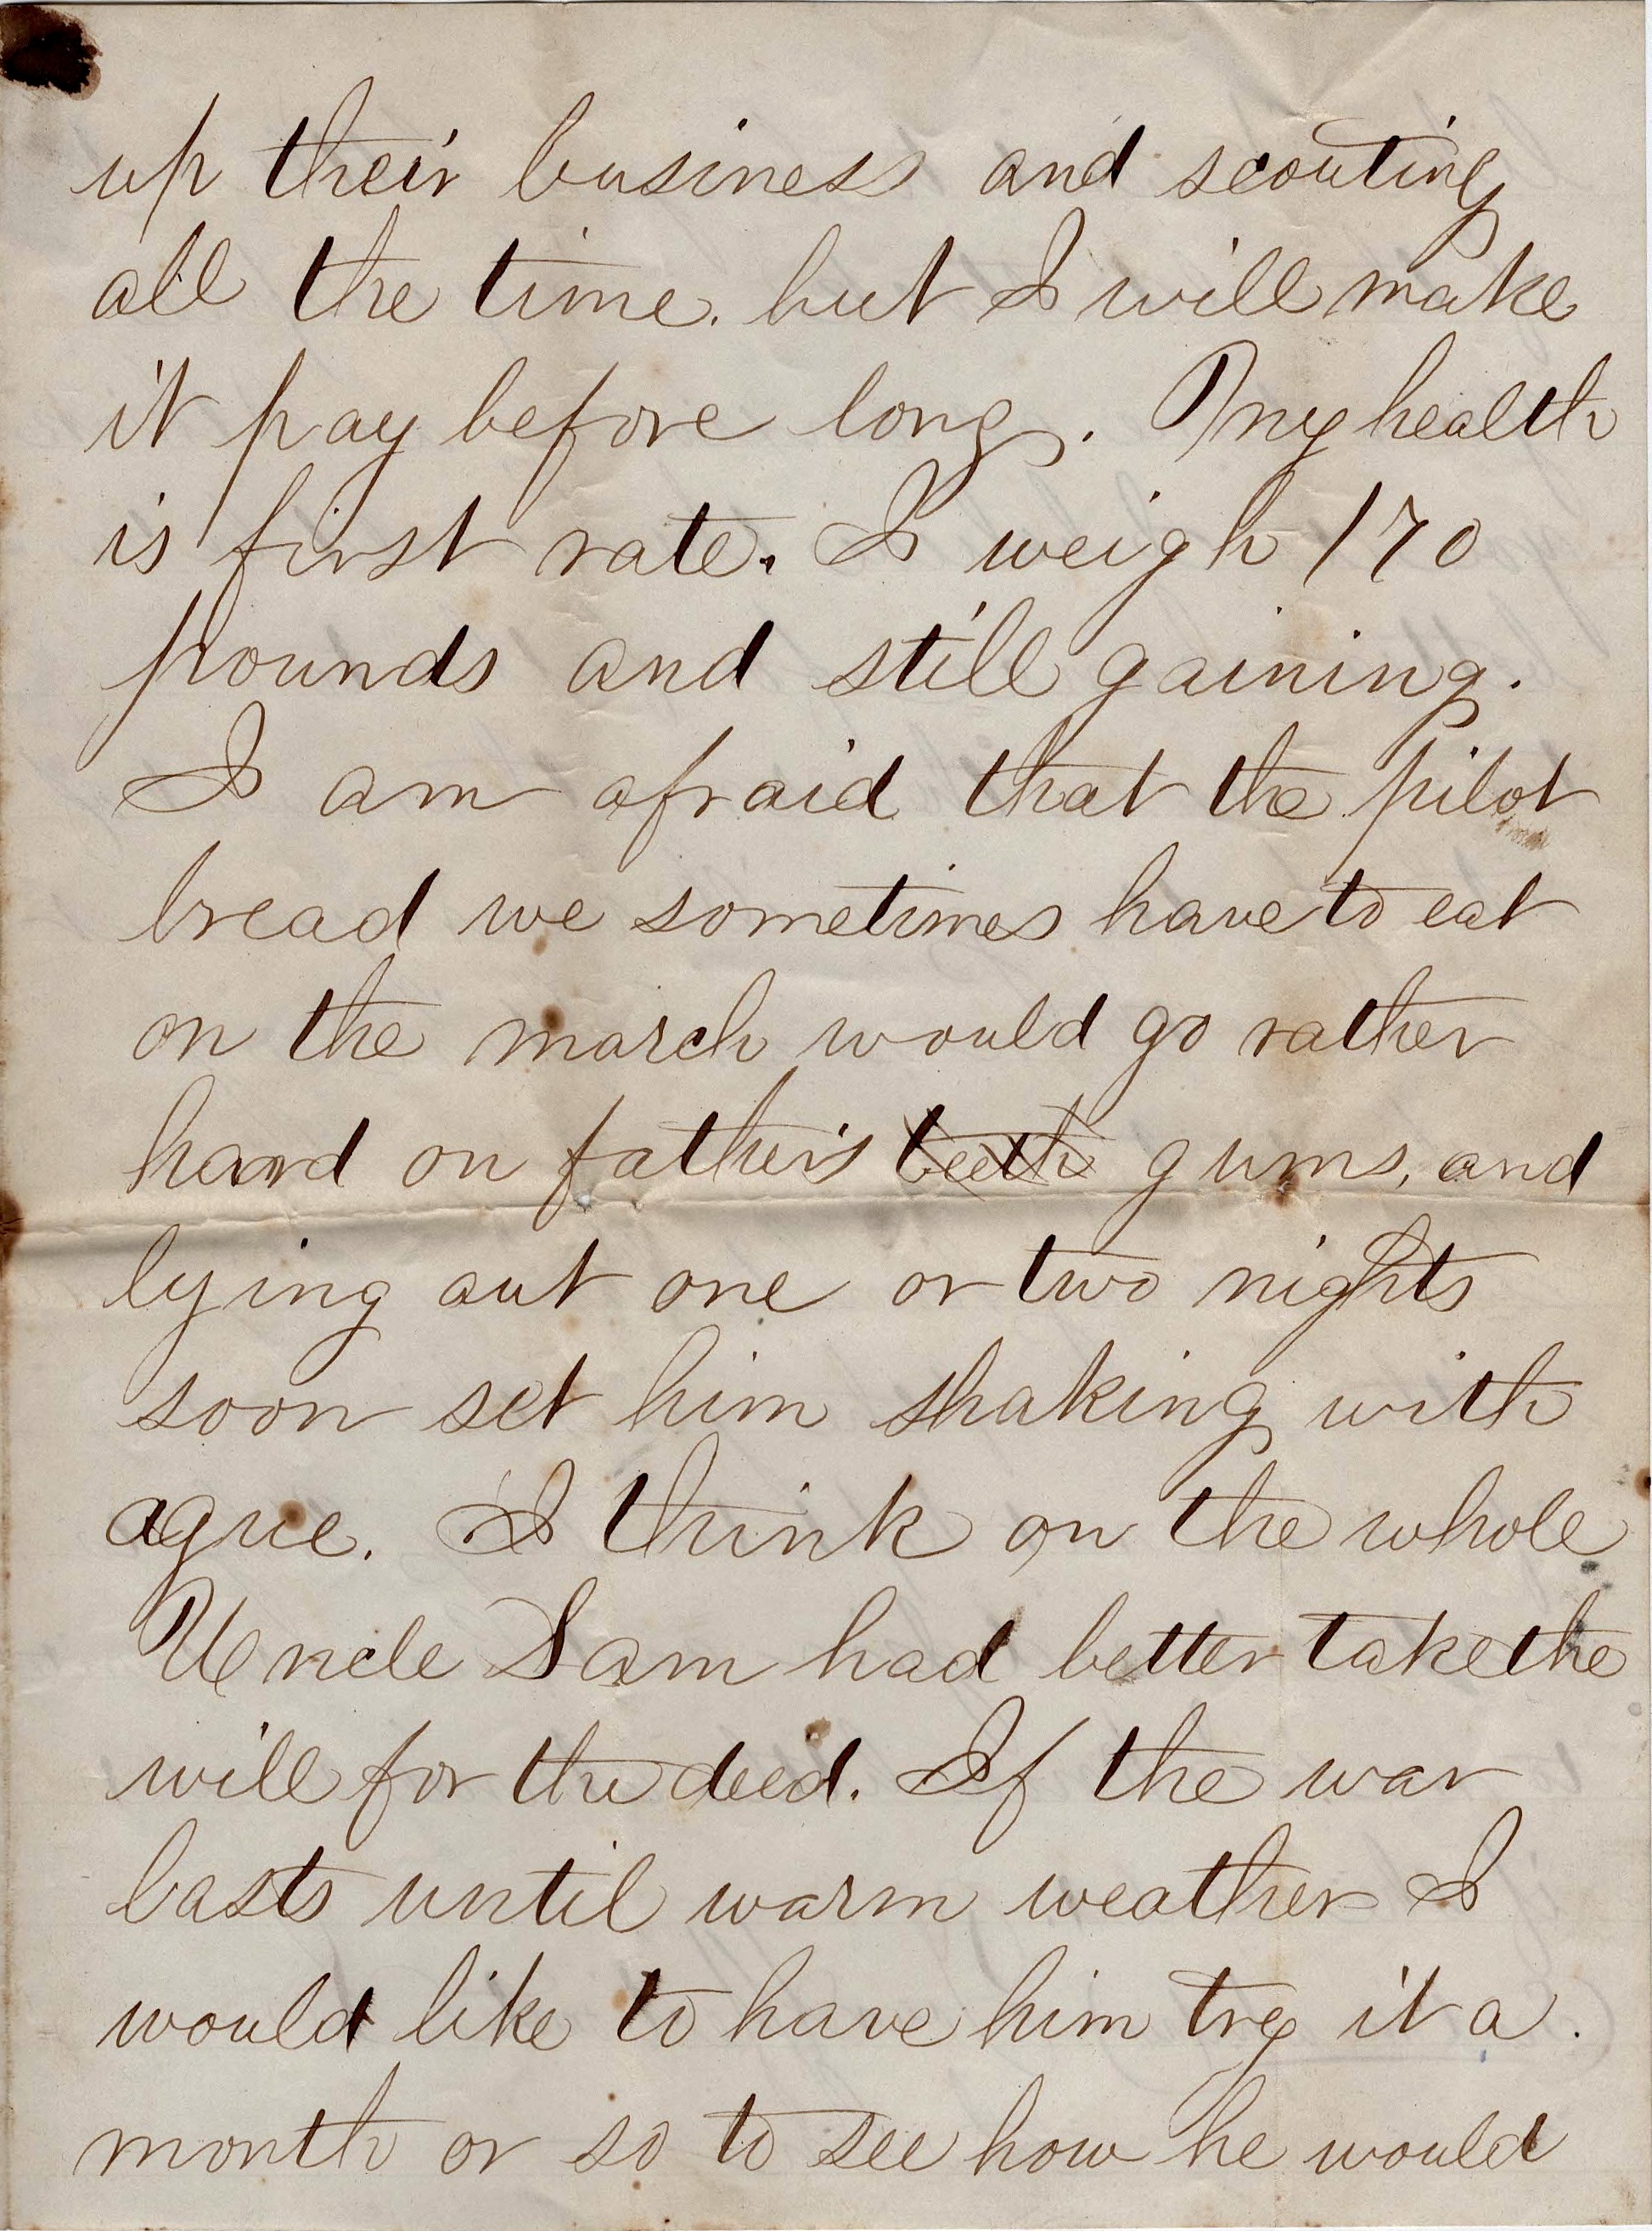 up their business and scouting
all the time. but I will make
it pay before long. My health
is first rate. I weigh 170
pounds and still gaining.
I am afraid that the pilot
bread we sometimes have to eat
on the march would go rather
hard on father's teeth gums, and
lying out one or two nights
soon set him shaking with
ague. I think on the whole
Uncle Sam had better take the
will for the deed. If the war
lasts until warm weather I
would like to have him try it a
month or so to see how he would